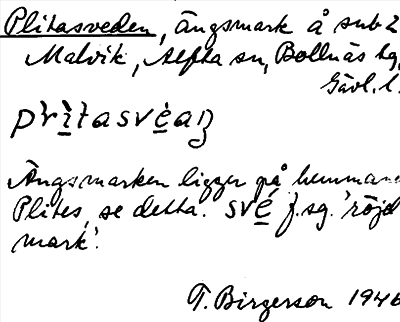 Plitasveden, Ängsmark å sub 2
Malvik, Alfta sn, Bollnäs
Gävl. l.
Ängsmarken ligger på hemman
Plites, se detta. své f. sg. 'röjd
mark'.
T. Birgerson 1946